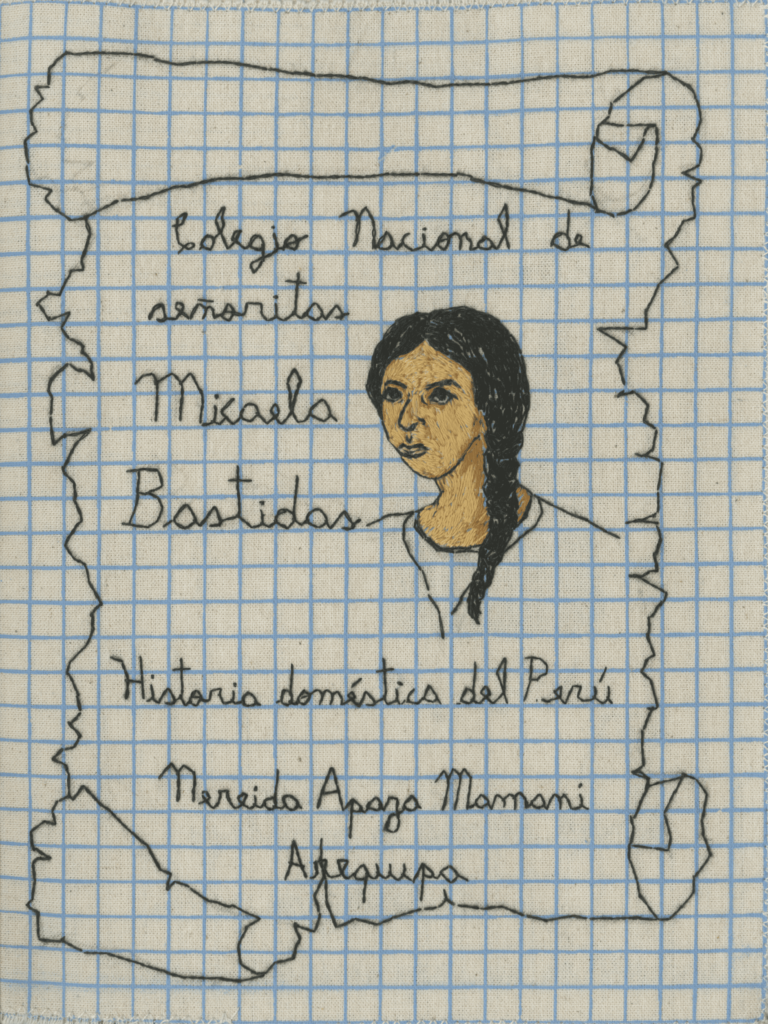 Colegio Nacional de
señoritas
Micaela
Bastidas
Historia doméstica del Perú
Nereida Apaza Mamani
Arequipa